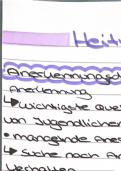 Heit
Anerkennungsd
Anerkennung
↳ wichtigste Que
von Jugendlichen
• mangelnde Aner
↳ Suche nach An
Verhalten